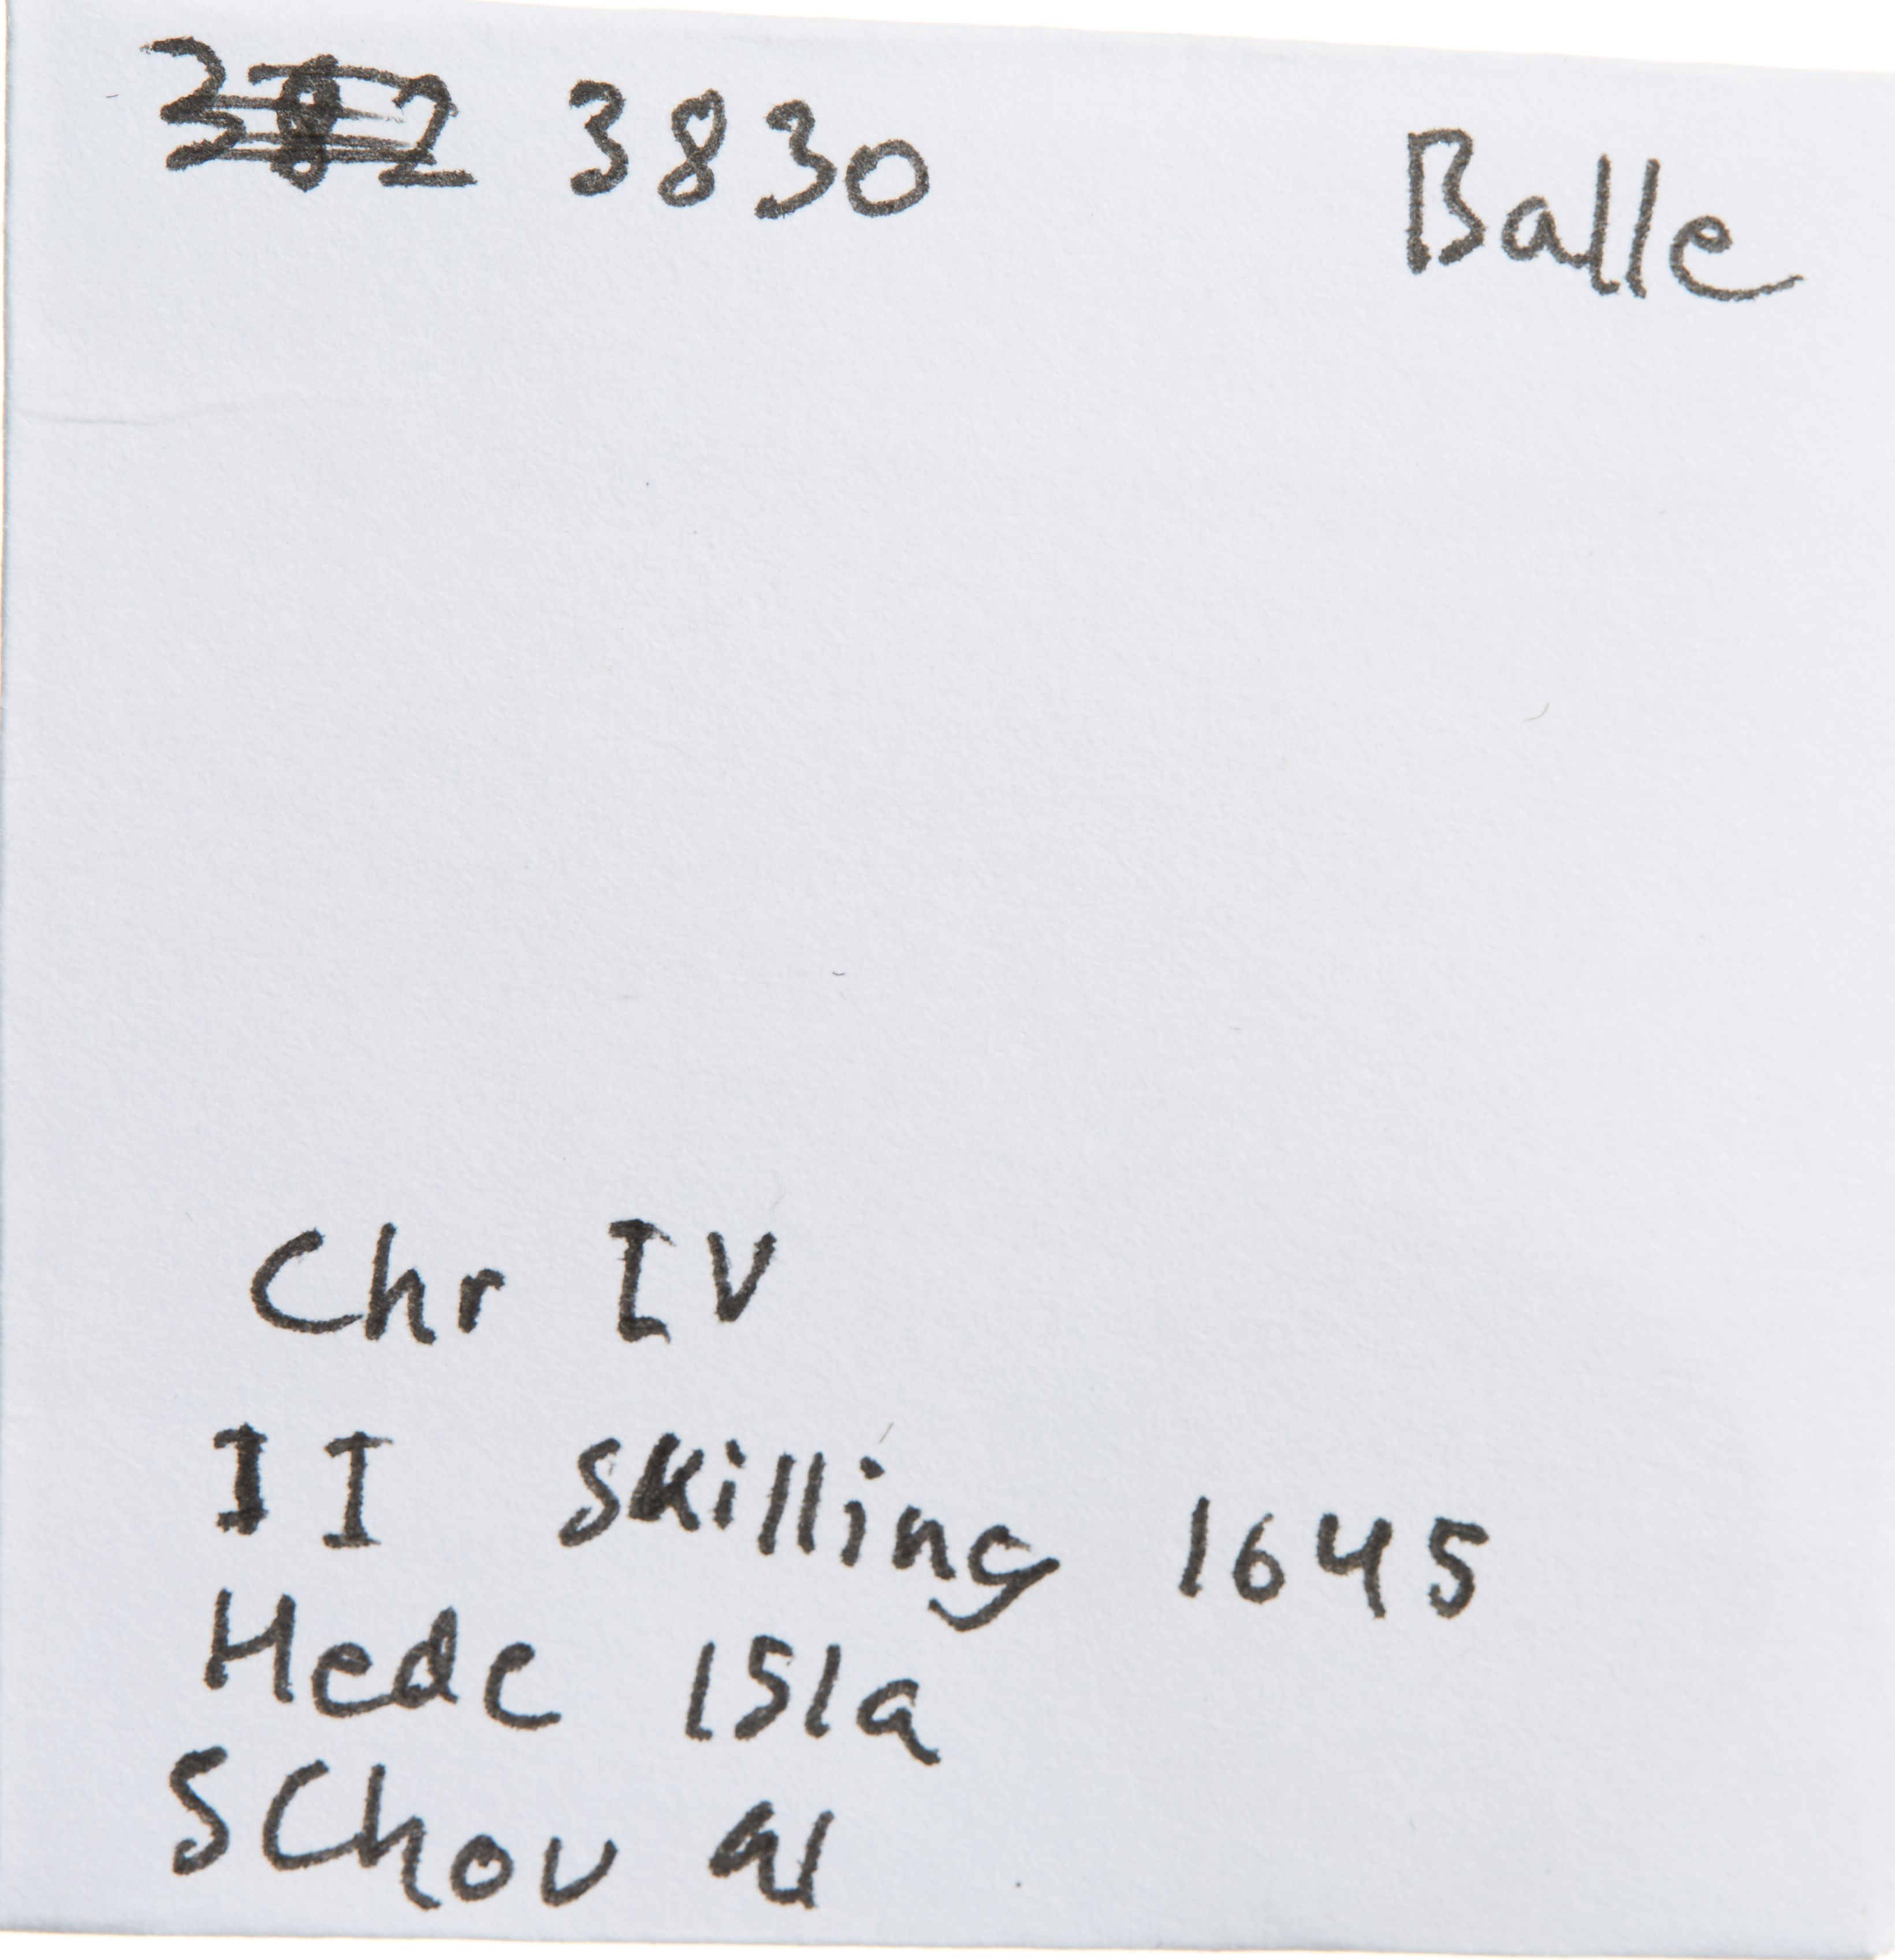 3830 Balle
Chr IV
II Skilling 1645
Hede 151a
SChou a1